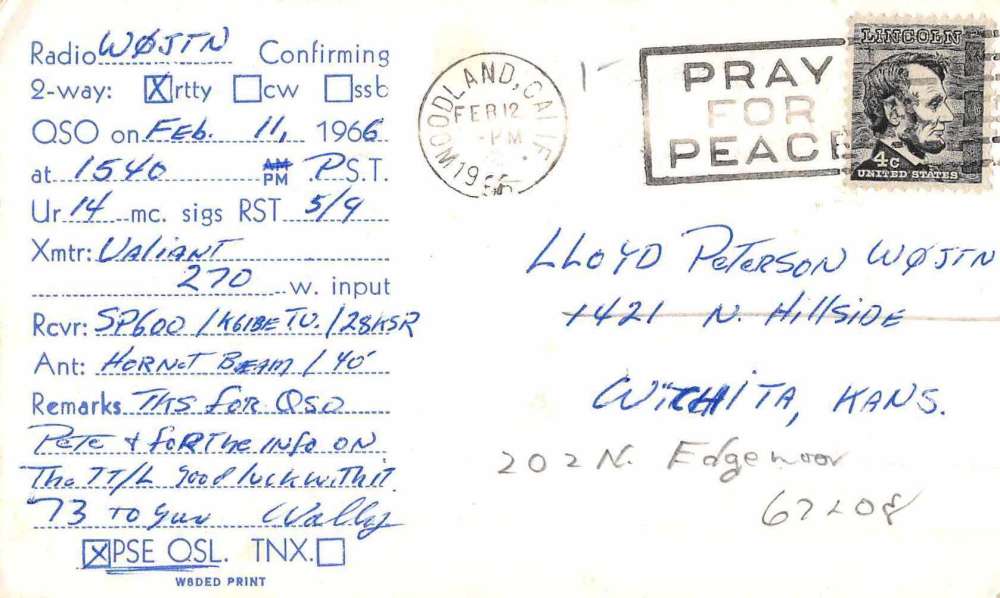 Radio WØJTN Confirming
2-way: ☒rtty ☐cw ☐ssb
QSO on Feb. 11, 1966
at 1540 AM PM P S.T.
Ur 14 mc. sigs RST 5/9
Xmtr: Valiant
270 w. input
Rcvr: SP600 / K6IBE TU. / 28KSR
Ant: HORNET BEAM / 40'
Remarks THS for QSO
Pete + for The info on
The TT/L good luck with it.
73 To you Wally
☒PSE QSL. TNX.☐
W8DED PRINT
WOODLAND, CALIF.
FEB 12
-PM
1966
PRAY
FOR
PEACE
LINCOLN
4c
UNITED STATES
LLOYD Peterson WØJTN
1421 N. HillSIDE
WICHITA, KANS.
202 N. Edgemoor
67208